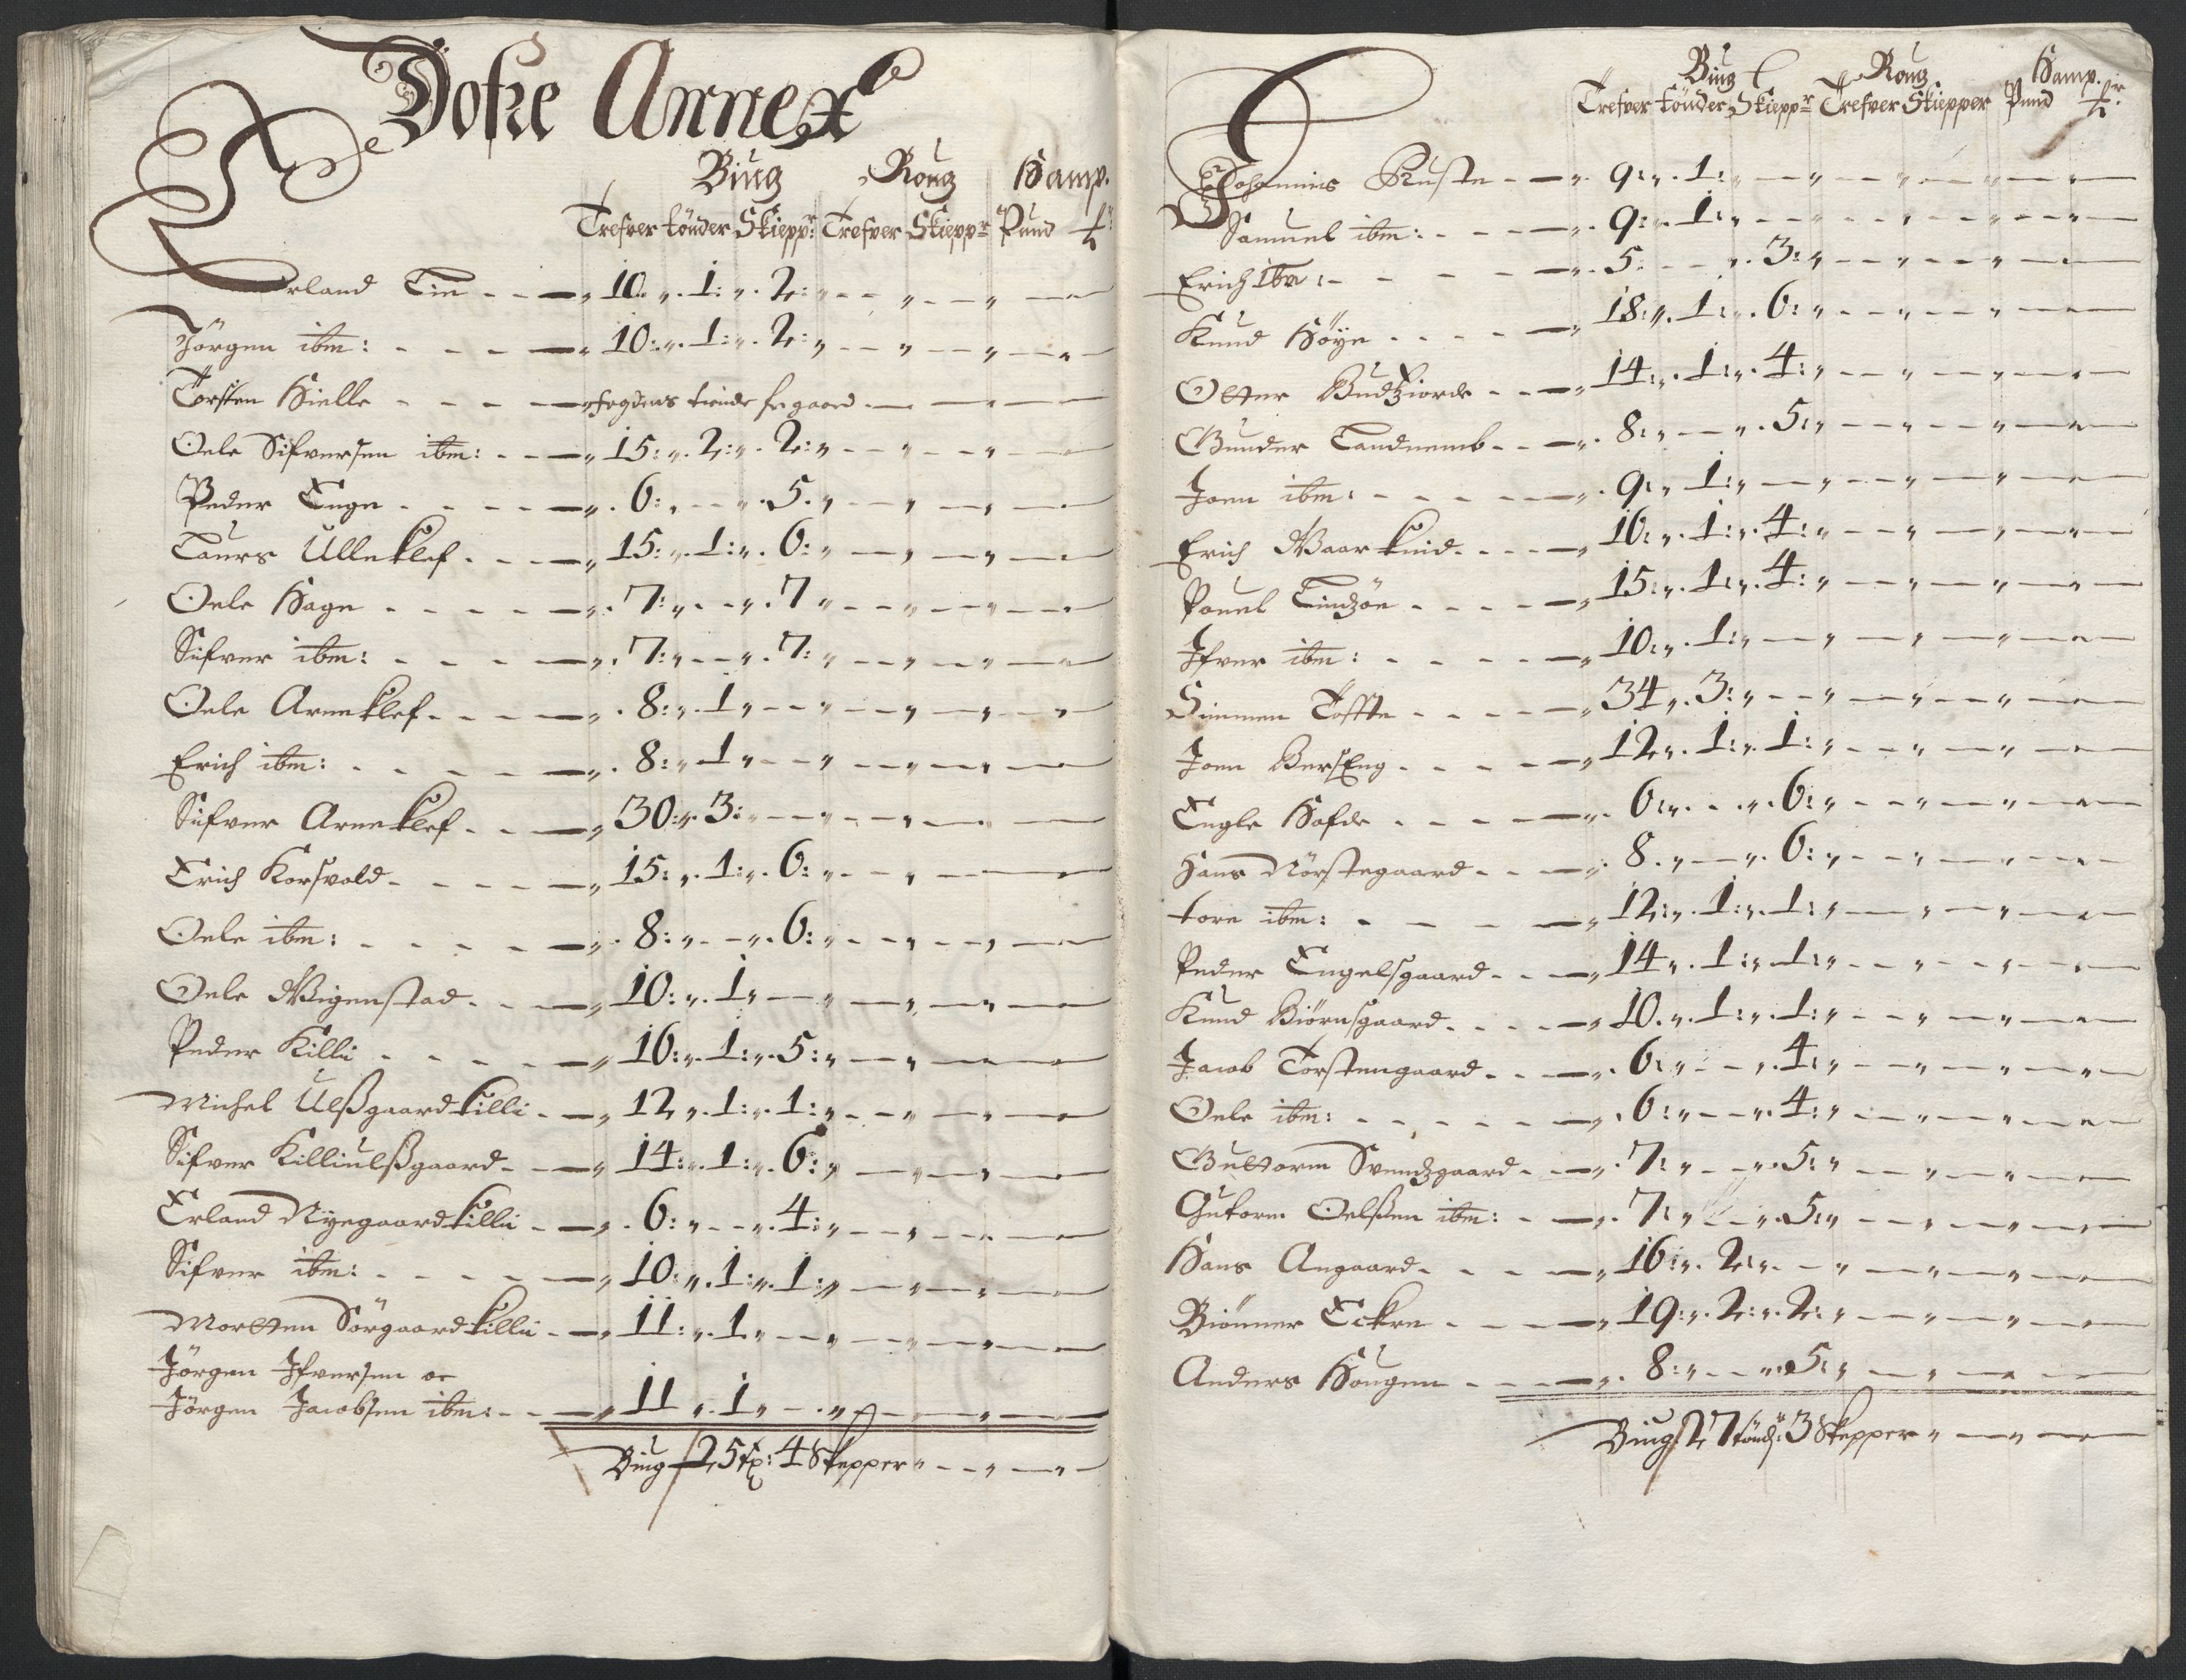 Dofre Annex
Biug Roug Hamp.
Trefver tönder Skiepp: Trefver Skieppr Pund
Erland Lin - - - 10: 1: 2:
Jörgen ibm: - - - 10: 1: 2:
Torsten Hielle - - - fogdens tiende fr gaard
Oele Sifversen ibm: - - 15: 2: 2:
Peder Enge - - - 6: - 5.
Laurs Ulleklef - - 15: 1: 6:
Oele Hage - - - 7: - 7
Sifver ibm: - - - 7: - 7:
Oele Arneklef - - - 8: 1
Erich ibm: - - - 8: 1
Sifver Arneklef - - 30: 3:
Erich Korsvold - - - 15: 1: 6:
Oele ibm: - - - 8: - 6:
Oele Wigenstad - - 10: 1
Peder Killi - - - 16: 1: 5:
Michel Ulßgaard killi - 12 1: 1:
Sifver Killiulßgaard - 14: 1: 6:
Erland Nyegaard killi - 6: - 4:
Sifver ibm: - - - 10: 1: 1:
Morten Sörgaard killi - 11: 1
Jörgen Ifversen oc
Jörgen Jacobsen ibm: - 11 1
Biug 25 4 Skepper
Biug Roug Hamp.
Trefver tönder Skieppr Trefver Skiepper Pund
Johannis Ruste - - 9: 1:
Samuel ibm: - - 9: 1:
Erich ibm: - - 5: - 3:
Knud Höye - - - 18: 1: 6:
Otter Budziorde - - 14: 1: 4:
Gunder Landnemb - - 8: - 5:
Joen ibm: - - - 9: 1:
Erich Waarkind - - - 16: 1: 4:
Pouel Lindzöe - - - 15: 1: 4:
Ifver ibm: - - - 10: 1:
Simmen Toffte - - - 34 3:
Joen BersEng - - - 12 1: 1:
Engle Hofde - - - 6: - 6:
Hans Nörstegaard - - 8. - 6:
tore ibm: - - - 12: 1: 1:
Peder Engelsgaard - - 14 1: 1:
Knud Biörnsgaard - - - 10. 1: 1:
Jacob Torstengaard - - 6: - 4:
Oele ibm: - - - 6: - 4:
Guttorm Svendzgaard - - 7: - 5:
Gutorm Oelßen ibm: - 7: - 5:
Hans Angaard - - - 16: 2:
Biönner Eckre - - - 19: 2: 2:
Anders Hougen - - - 8: - 5:
Biug 27 tönd: 3 Skepper